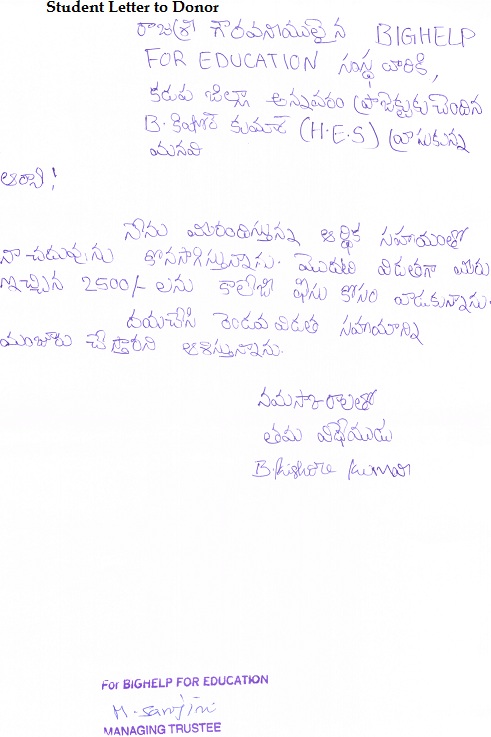 Student Letter to Donor
రాజశ్రీ గౌరవనీయులైన BIGHELP
FOR EDUCATION సంస్థ వారికి,
కడప జిల్లా అన్నవరం ప్రాజెక్టుకు చెందిన
B. కిషోర్ కుమార్ (H.E.S) వ్రాసుకున్న
మనవి
ఆర్యా!
నేను మీరందిస్తున్న ఆర్థిక సహాయంతో
నా చదువును కొనసాగిస్తున్నాను. మొదటి విడతగా మీరు
ఇచ్చిన 2500/- లను కాలేజీ ఫీజు కోసం వాడుకున్నాను.
దయచేసి రెండవ విడత సహాయాన్ని
మంజూరు చేస్తారని ఆశిస్తున్నాను.
నమస్కారాలతో
తమ విధేయుడు
B. Kishore Kumar
For BIGHELP FOR EDUCATION
M. Sarojini
MANAGING TRUSTEE